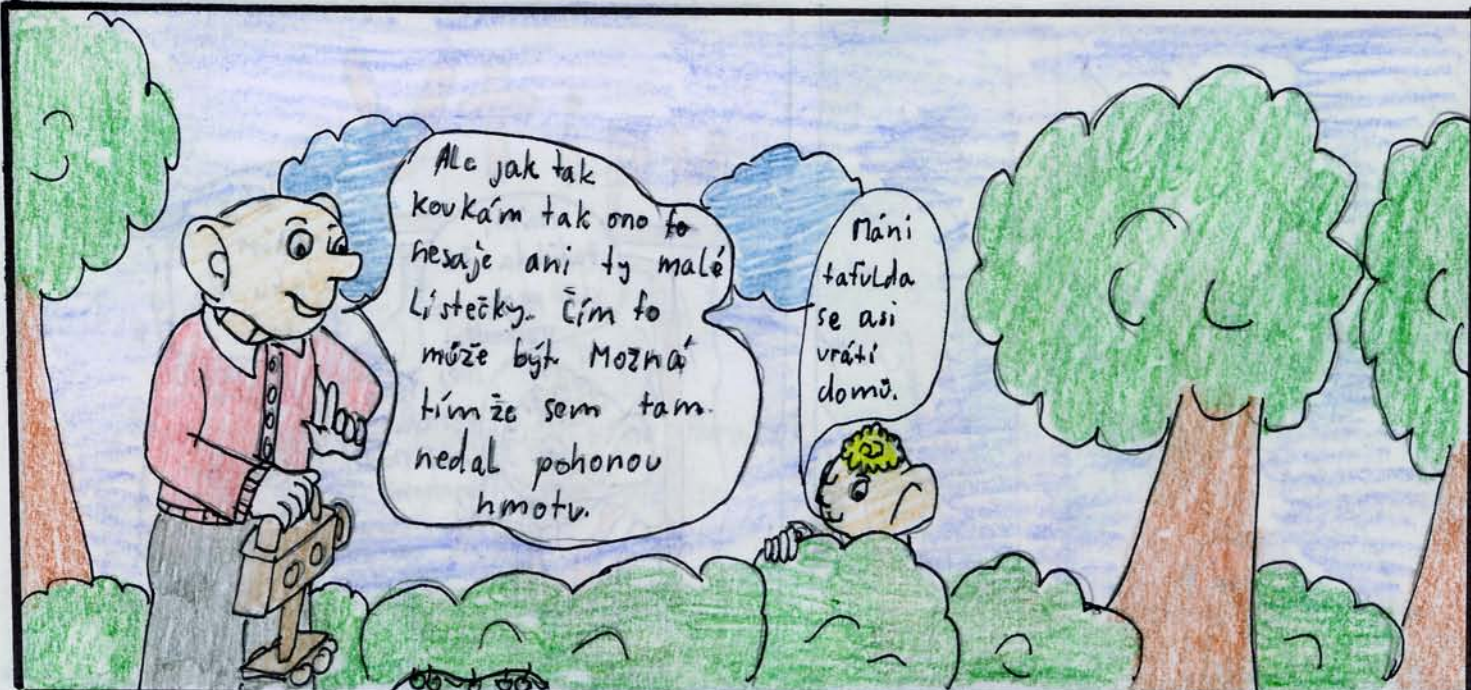 Ale jak tak
koukám tak ono to
nesaje ani ty malé
Lístečky. Čím to
může být. Možná
tím že sem tam.
nedal pohonou
hmotu.
Máni
tafulda
se asi
vrátí
domů.